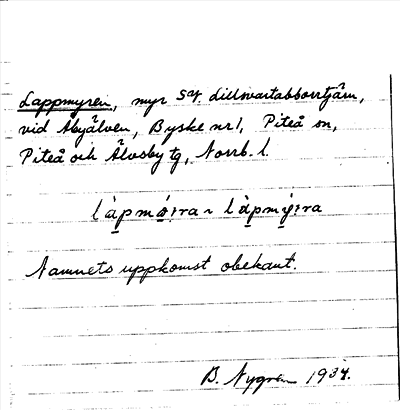 Lappmyren, myr SV. Lillsvartabborrtjärn,
vid Åbyälven, Byske nr 1, Piteå sn,
Piteå och Älvsby tg, Norrb. l.
làpmǿ:ra ~ làpmý:ra
Namnets uppkomst obekant.
B. Nygren 1934.